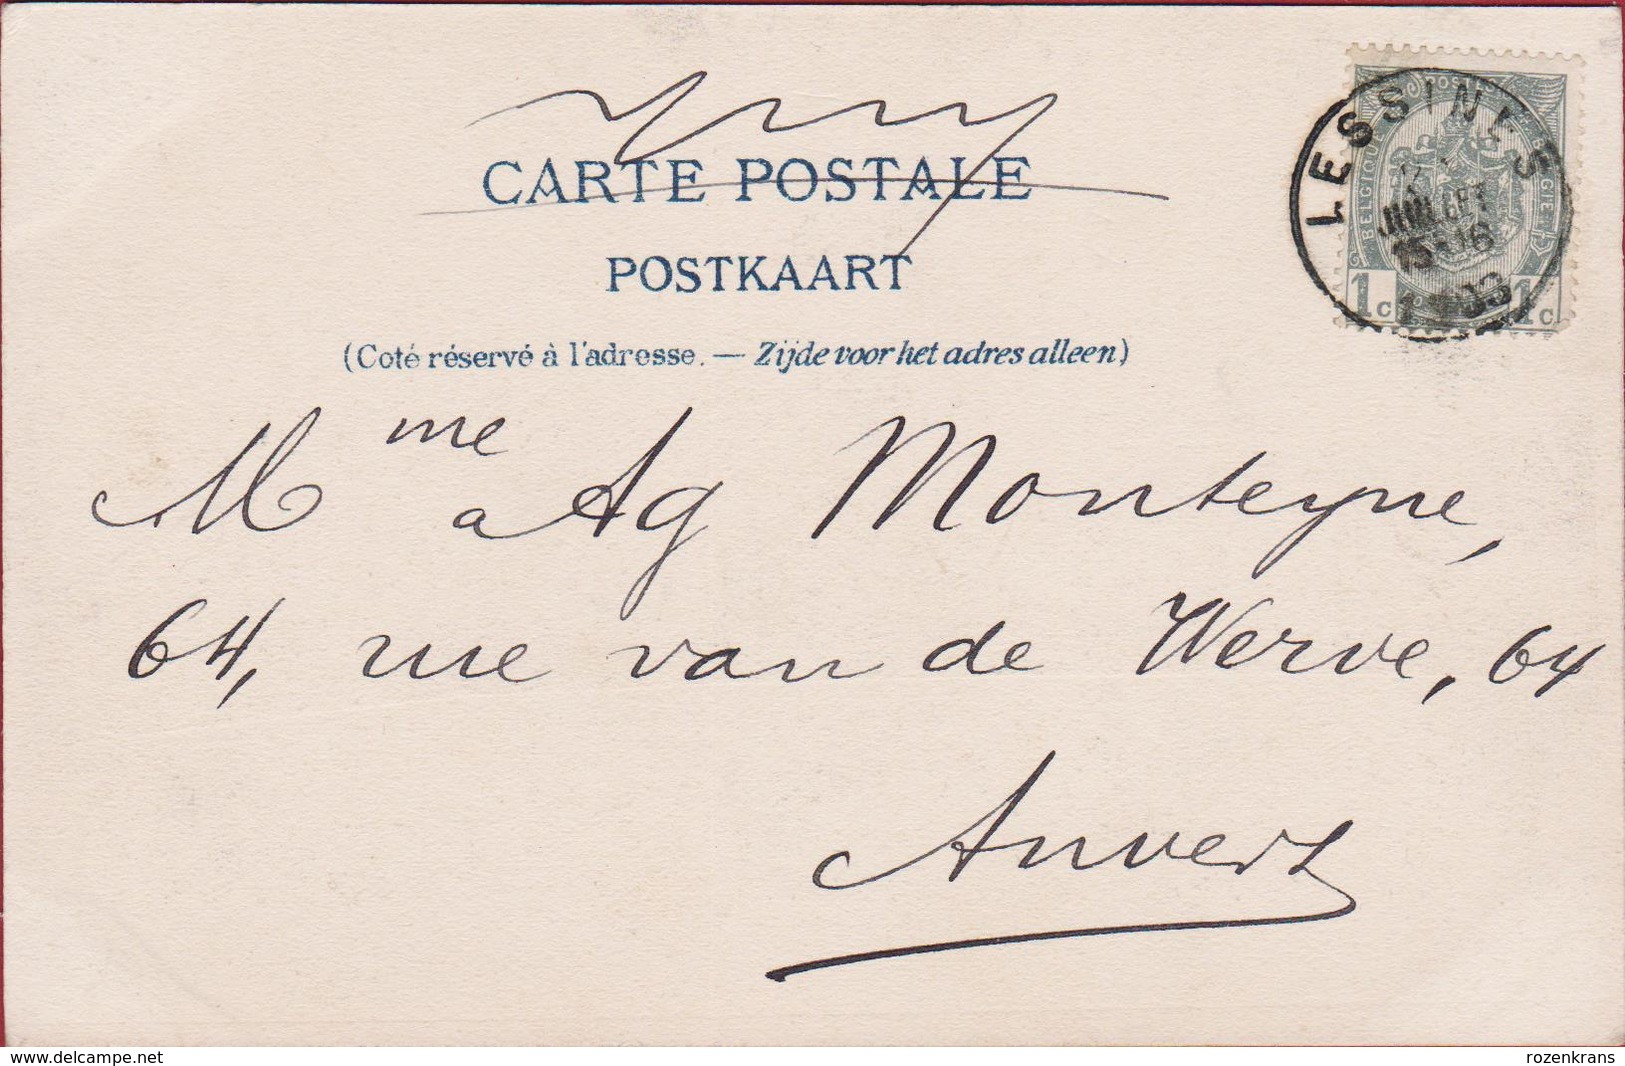 CARTE POSTALE
POSTKAART
(Coté réservé à l'adresse. — Zijde voor het adres alleen)
LESSINES
JUILLET
15-16
1903
POSTES
BELGIQUE BELGIË
1c 1c
Mme Ag Monteyne,
64, rue van de Werve, 64
Anvers
www.delcampe.net
rozenkrans